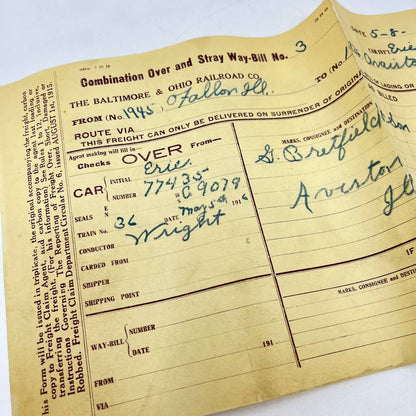 Combination Over and Stray Way-Bill No. 3
THE BALTIMORE & OHIO RAILROAD CO.
DATE 5-8-
FROM (No. 1945, O'Fallon Ill.
TO (No.
ROUTE VIA
THIS FREIGHT CAN ONLY BE DELIVERED ON SURRENDER OF ORIGINAL
Agent making will fill in
Checks OVER From
MARKS, CONSIGNEE AND DESTINATION
CAR
INITIAL Eric
NUMBER 77435
SEALS
C 9079
TRAIN No. 36 DATE May 5th 1916
CONDUCTOR Wright
CARDED FROM
SHIPPER
SHIPPING POINT
WAY-BILL
NUMBER
DATE 191
FROM
VIA
Aviston
Ill
IF
MARKS, CONSIGNEE AND DESTINATION
This Form will be issued in triplicate, the original accompanying the freight, carbon
copy to Freight Claim Agent, and carbon copy to the agent loading or
transferring the freight. (For this information see) Rules 1 to 17, inclusive,
Instructions Governing The Reporting of Freight Over, Short Damaged or
Robbed. Freight Claim Department Circular No. 6, issued AUGUST 1st, 1915.